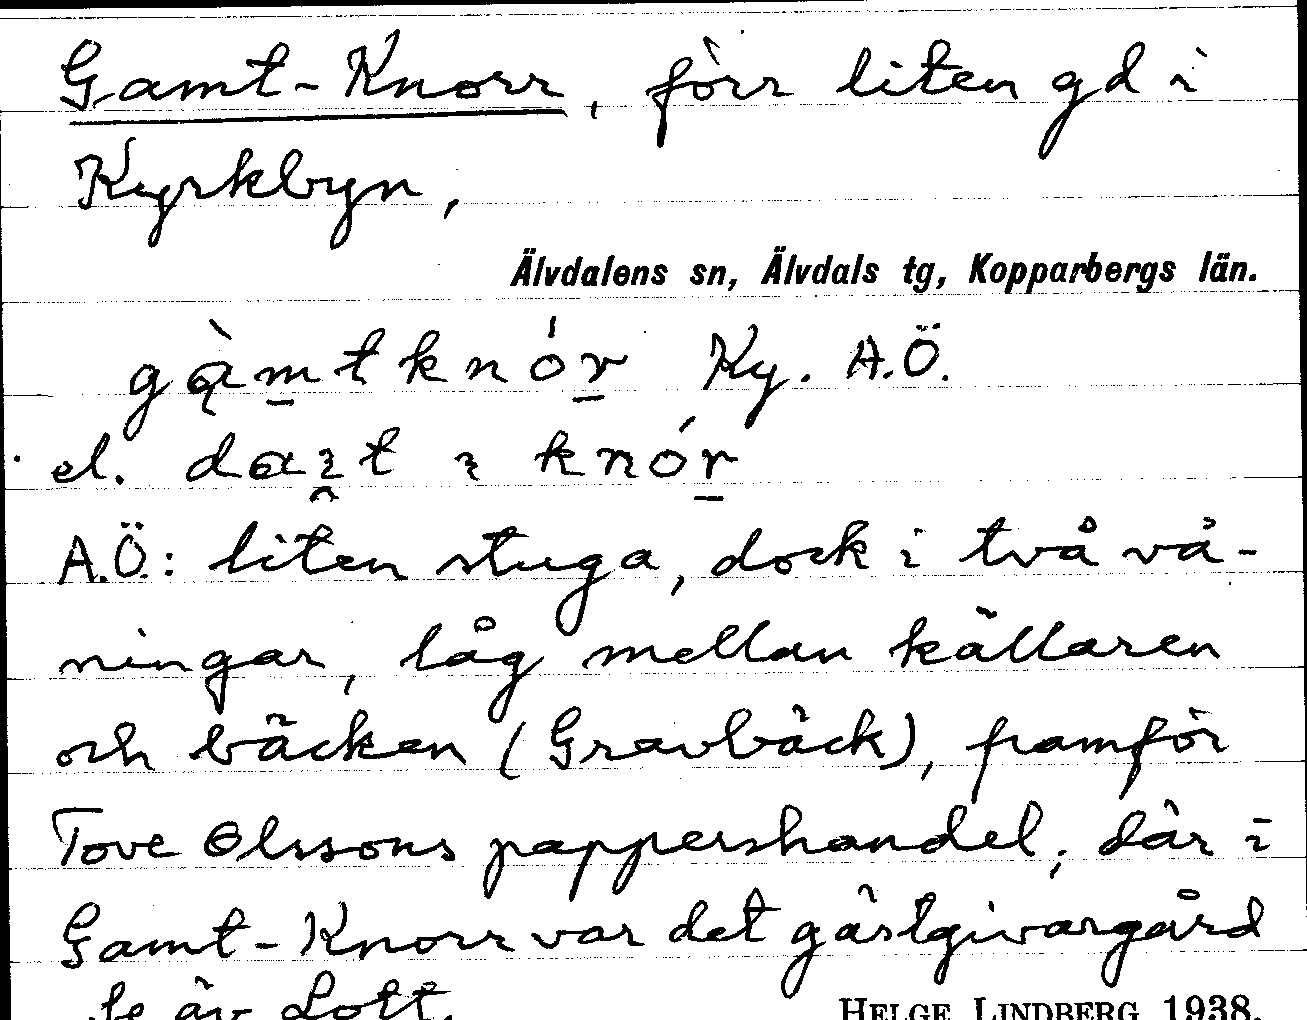 Gamt-Knorr, förr liten gd i
Kyrkbyn,
Älvdalens sn, Älvdals tg, Kopparbergs län.
gàmtknór Ky. A.Ö.
el. knór
A.Ö.: liten stuga, dock i två vå-
ningar, låg mellan källaren
och bäcken (Gravbäck), framför
Tove Olssons pappershandel; där i
Gamt-Knorr var det gästgivargård
Se äv Lott.
HELGE LINDBERG 1938.